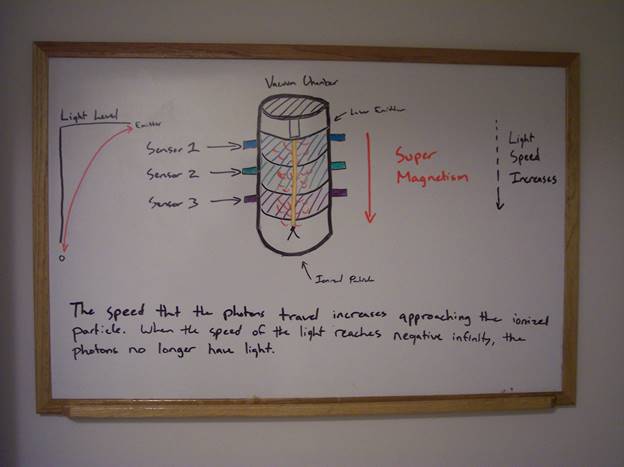 Vacuum Chamber
Light Level
Emitter
Laser Emitter
Sensor 1
Sensor 2
Sensor 3
Super
Magnetism
Light
Speed
Increases
0
Ionized Particle
The speed that the photons travel increases approaching the ionized
particle. When the speed of the light reaches negative infinity, the
photons no longer have light.